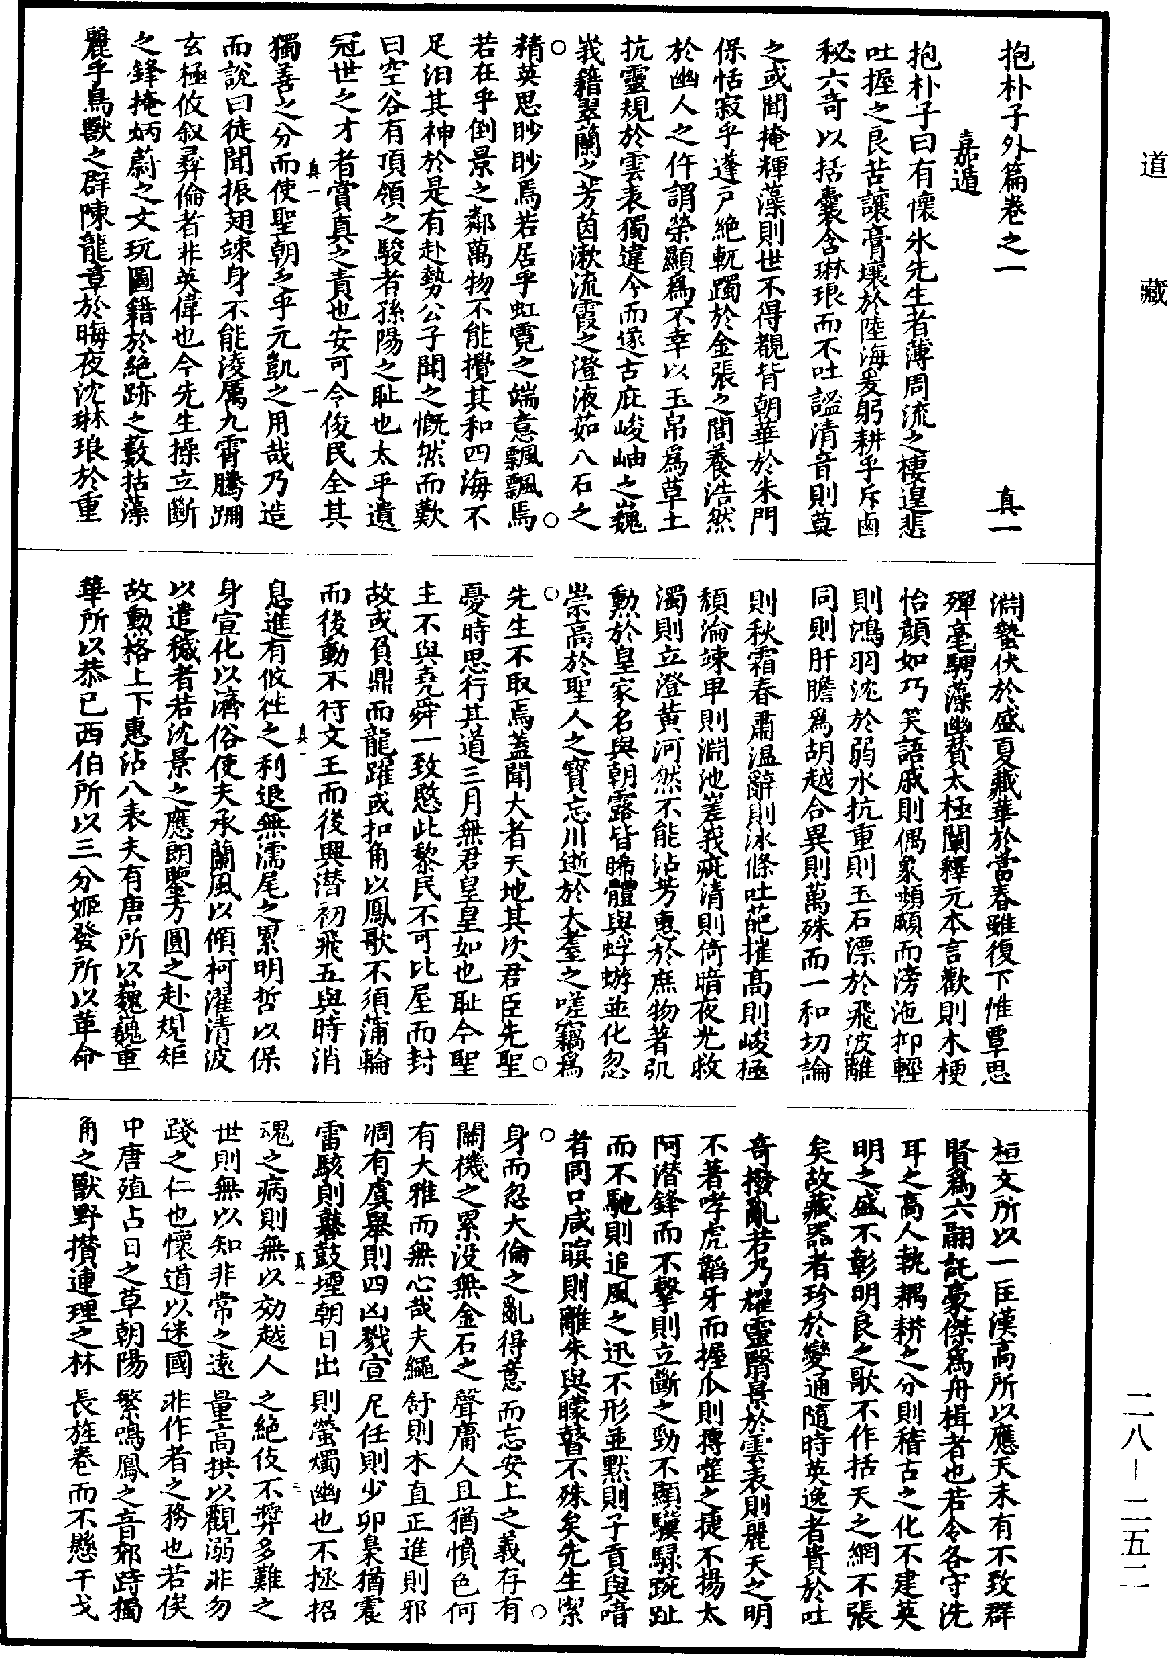 道藏
抱朴子外篇卷之一 真一
嘉遁
抱朴子曰有懷氷先生者薄周流之棲遑悲
吐握之良苦讓膏壤於陸海爰躬耕乎斥鹵
秘六奇以括囊含琳琅而不吐謐清音則莫
之或聞掩輝藻則世不得覩背朝華於朱門
保恬寂乎蓬戶絶軌躅於金張之閭養浩然
於幽人之仵謂榮顯為不幸以玉帛為草土
抗靈規於雲表獨違今而遂古庇峻岫之巍
峩籍翠蘭之芳茵漱流霞之澄液茹八石之
精英思眇眇焉若居乎虹霓之端意飄飄焉
若在乎倒景之鄰萬物不能攪其和四海不
足汨其神於是有赴勢公子聞之慨然而歎
曰空谷有項領之駿者孫陽之耻也太平遺
冠世之才者賞真之責也安可令俊民全其
真一 一
獨善之分而使聖朝乏乎元凱之用哉乃造
而說曰徒聞振翅竦身不能淩厲九霄騰跚
玄極攸叙彛倫者非英偉也今先生操立斷
之鋒掩炳蔚之文玩圖籍於絶跡之藪括藻
麗乎鳥獸之群陳龍章於晦夜沈琳琅於重
淵蟄伏於盛夏藏華於當春雖復下惟覃思
殫毫騁藻幽賛太極闡釋元本言歡則木梗
怡顔如巧笑語戚則偶象嚬顣而滂沲抑輕
則鴻羽沈於弱水抗重則玉石漂於飛波離
同則肝膽為胡越合異則萬殊而一和切論
則秋霜春肅温辭則氷條吐葩摧高則峻極
頽淪竦卑則淵池嵳峩疵清則倚暗夜光救
濁則立澄黄河然不能沾芳惠於庶物著弘
勲於皇家名與朝露皆晞體與蜉蝣並化忽
崇高於聖人之寳忘川逝於大耋之嗟竊為
先生不取焉蓋聞大者天地其次君臣先聖
憂時思行其道三月無君皇皇如也耻今聖
主不與堯舜一致愍此黎民不可比屋而封
故或負鼎而龍躍或扣角以鳳歌不須蒲輪
而後動不待文王而後興潜初飛五與時消
真一 二
息進有攸往之利退無濡尾之累明哲以保
身宣化以濟俗使夫承蘭風以傾柯濯清波
以遣穢者若沈景之應朗鑒方圓之赴規矩
故勳格上下惠沾八表夫有唐所以巍巍重
華所以恭己西伯所以三分姬發所以革命
桓文所以一匡漢高所以應天未有不致群
賢為六翮託豪傑為舟楫者也若令各守洗
耳之高人執耦耕之分則稽古之化不建英
明之盛不彰明良之歌不作括天之網不張
矣故藏器者珍於變通隨時英逸者貴於吐
奇撥亂若乃耀靈翳景於雲表則麗天之明
不著哮虎韜牙而握爪則搏噬之捷不揚太
阿潜鋒而不擊則立斷之勁不顯驥騄踠趾
而不馳則追風之迅不形並黙則子貢與喑
者同口咸瞑則離朱與矇瞽不殊矣先生潔
身而忽大倫之亂得意而忘安上之義存有
關機之累没無金石之聲庸人且猶憤色何
有大雅而無心哉夫繩舒則木直正進則邪
凋有虞舉則四凶戮宣尼任則少卯梟猶震
雷駭則鼛鼓堙朝日出則螢燭幽也不拯招
真一 三
魂之病則無以効越人之絶伎不弊多難之
世則無以知非常之遠量高拱以觀溺非勿
踐之仁也懷道以迷國非作者之務也若俟
中唐殖占日之草朝陽繁鳴鳳之音郊跱獨
角之獸野攅連理之林長旌卷而不懸干戈
二八—二五二